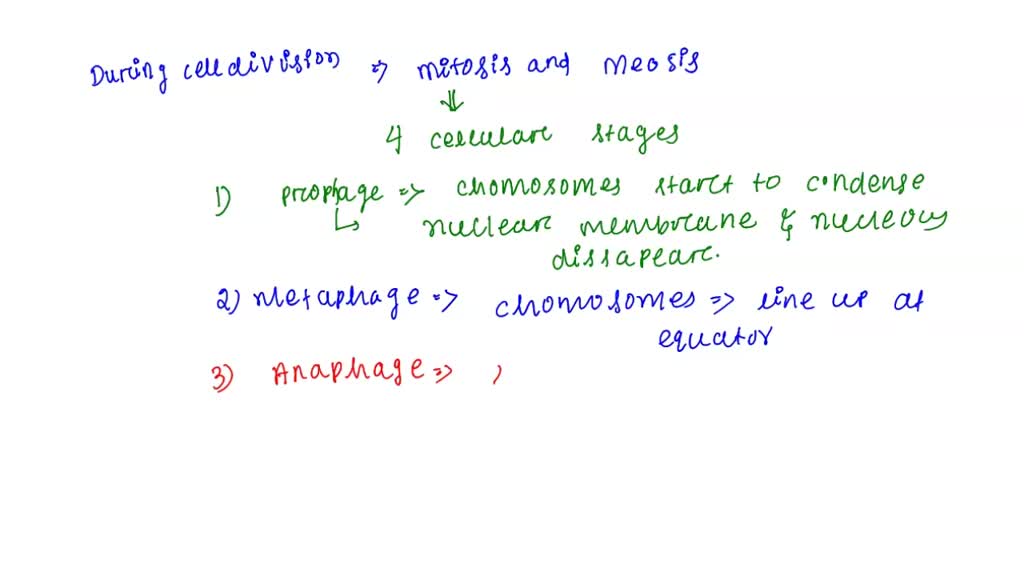 During cell division => mitosis and meosis
4 cellular stages
1) prophage => chomosomes start to condense
nuclear membrane & nucleous
dissapear.
2) Metaphage => chomosomes => line up at
equator
3) Anaphage =>